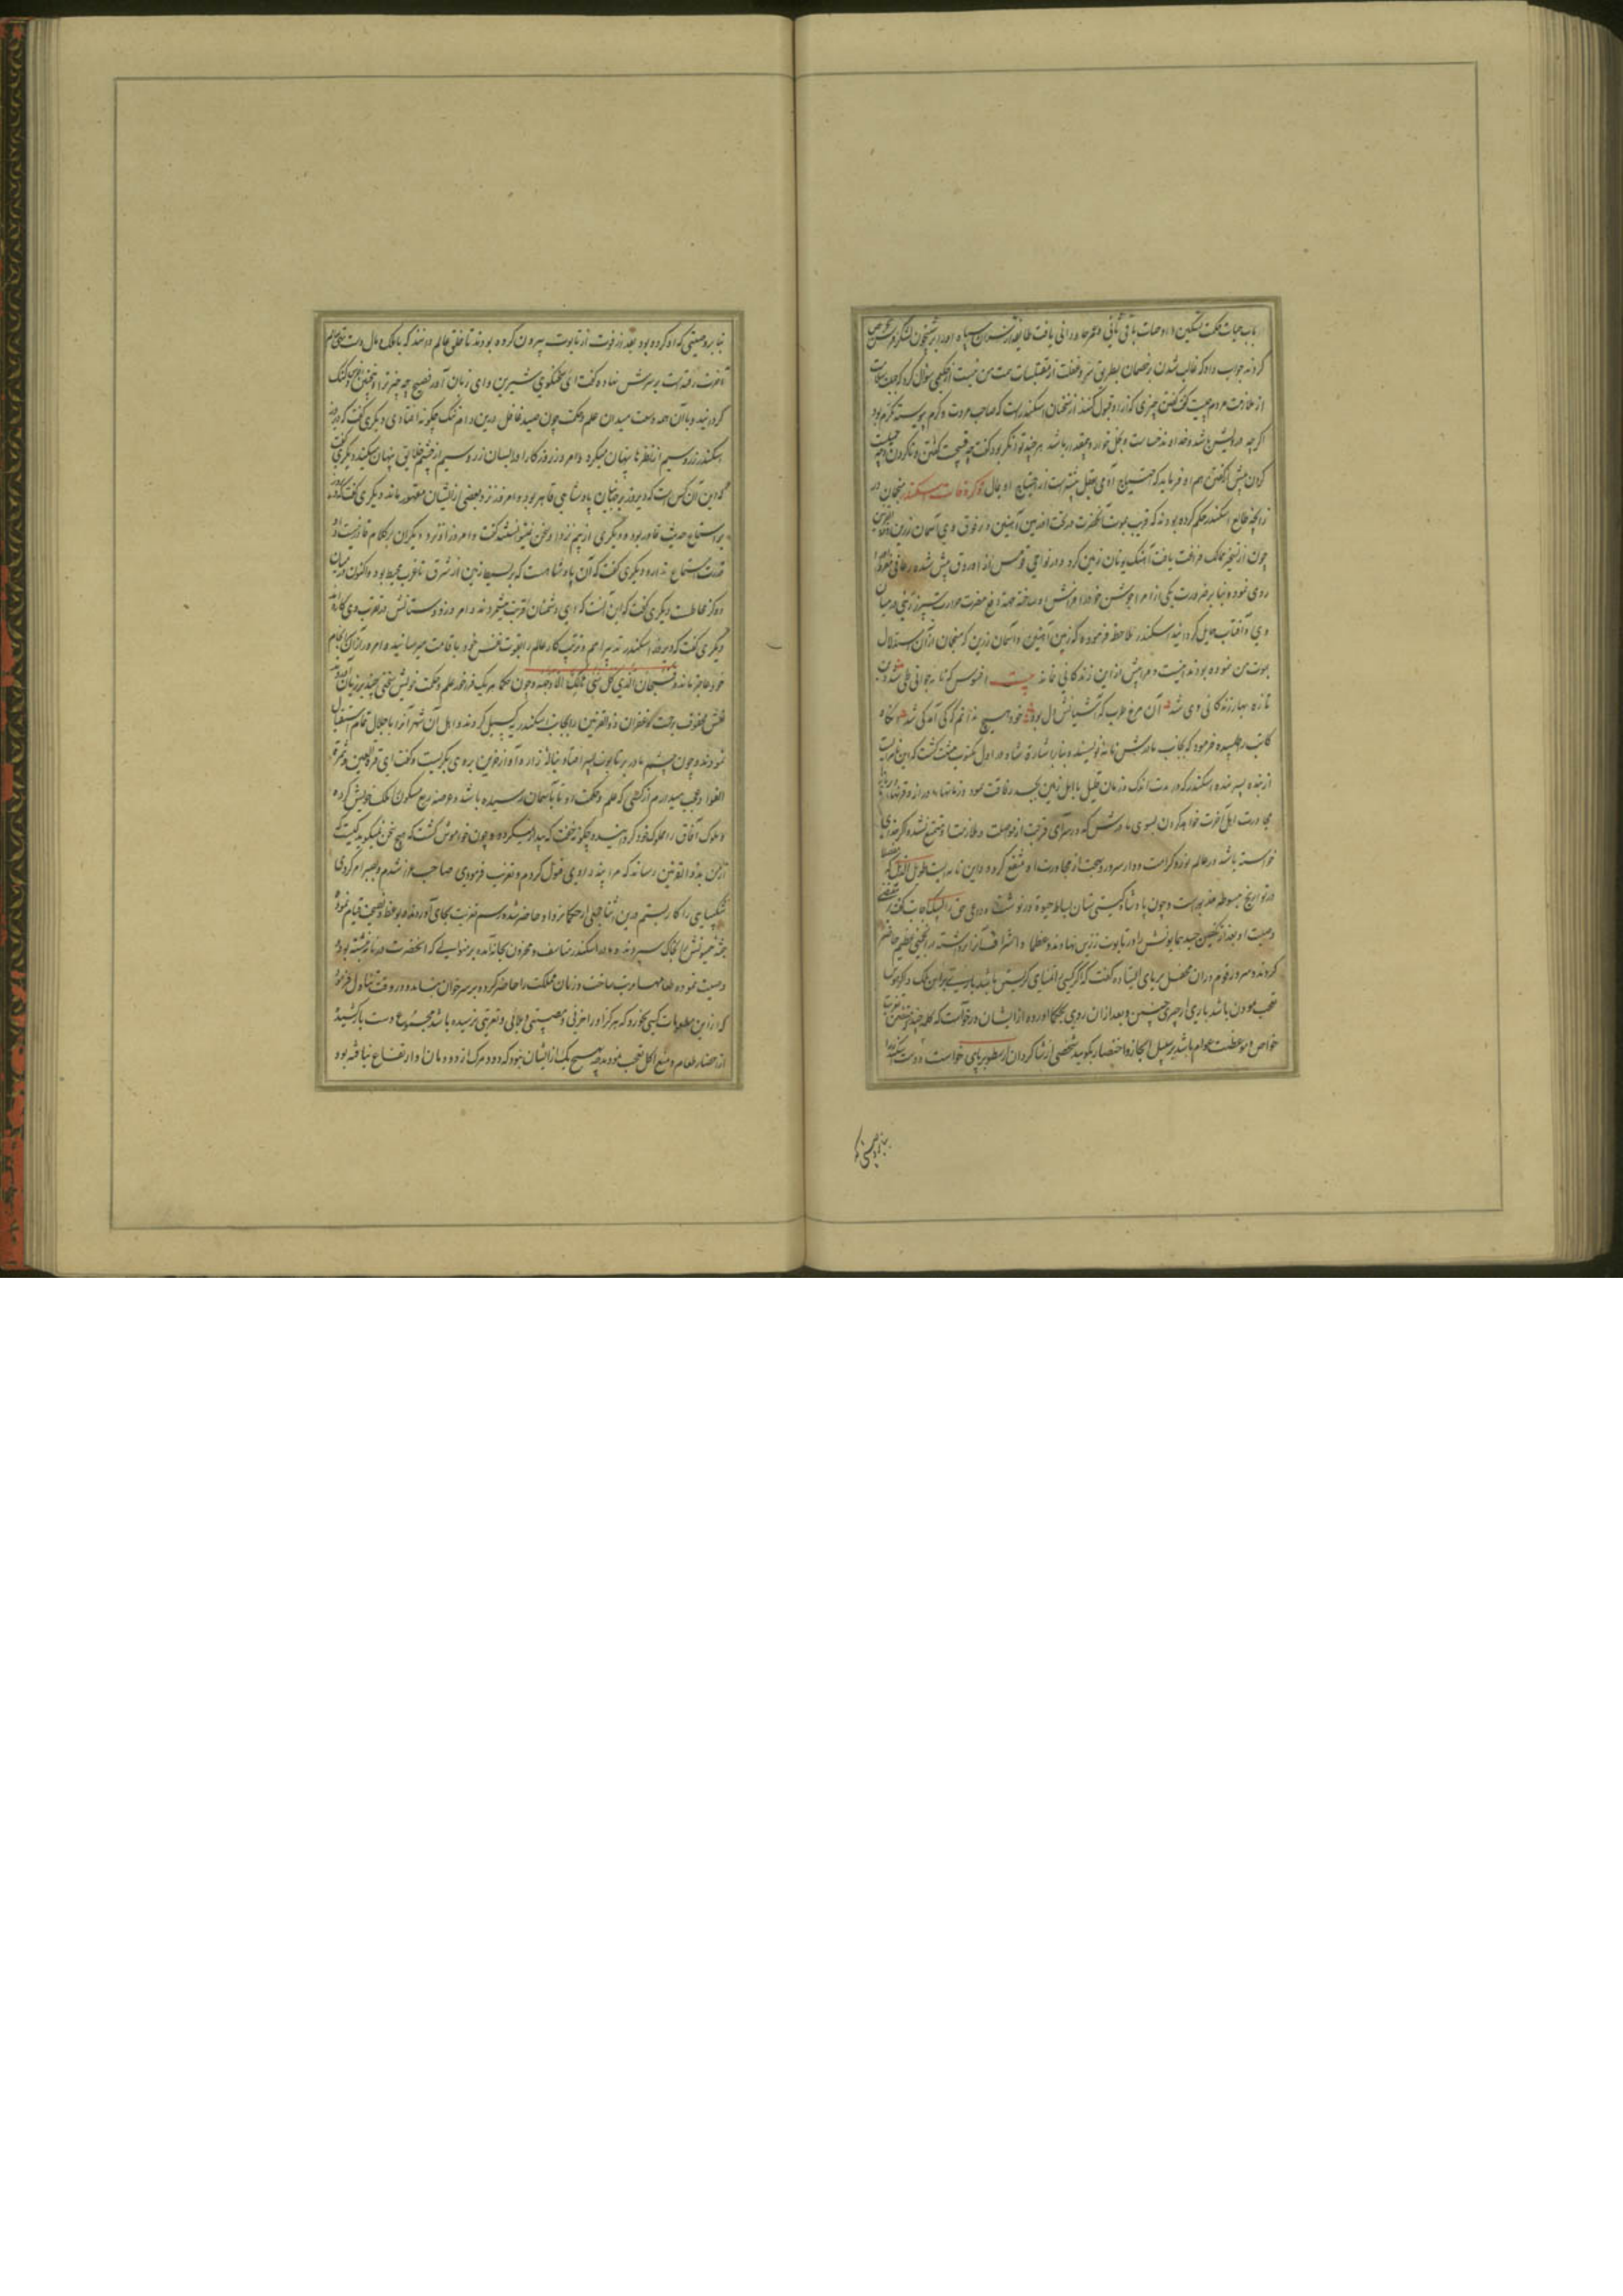 باب حیات حکمت تسکین داد و حیات باقی ثانی و عمر جاودانی یافت طایفه از سران سپاه او را بر شبیخون لشکر خصم
کردند جواب داد که غالب شدن بر خصمان بطریق سر و غفلت از مقتضیات همت من نیست از حکیمی سؤال کرد که
از ملازمت مردم چیست گفت گفتن چیزی که از او قبول کنند از سخنان اسکندرست که صاحب مروت و کرم پیوسته مکرم بود
اگر چه درویش باشد و خداوند خساست و بخل خوار و بیقدر باشد هر چند توانگر بود گفت چه قبیحست گفتن و ناکردن و چه
کردن پیش از گفتن هم او فرماید که احتیاج آدمی بعقل بیشتر است از احتیاج او بمال ذکر وفات اسکندر منجمان در
زایجه طالع اسکندر حکم کرده بودند که قریب بموت آنحضرت در تحت او زمین آهنین و در فوق وی آسمان زرین
چون از تسخیر ممالک فراغت یافت آهنگ یونان زمین کرد و در نواحی قومس از او رعافی
روی نمود و بنا بر ضرورت یکی از امرا جوشن خود را فراش او ساخته جهة دفع مضرت حرارت سپر زرین در میان
وی و آفتاب حایل گردانید اسکندر ملاحظه فرموده که زمین آهنین و آسمان زرین که منجمان از آن استدلال
بموت من نموده بودند اینست و مرا پیش ازین زندگانی نمانده بیت افسوس که نامه جوانی طی شد وین
تازه بهار زندگانی دی شد آن مرغ طرب که آشیانش دل بود خود هیچ ندانم که کی آمد کی شد آنگاه
کاتب را طلبیده فرمود که بجانب مادرش نامه نویسند و بنا بر اشارة شاه در اول مکتوب مثبت گشت که این نامه ایست
از بنده پسر بنده اسکندر که در مدت اندک و زمان قلیل با اهل زمین بجسد رفاقت نمود و زمانها دراز و قرنها
مجاورت اهل آخرت خواهد کردن بسوی مادرش که در سرای قربت از مواصلت و ملازمت او متمتع نشده گر خدای
خواسته باشد در عالم نور و کرامت و دار سرور و بهجت از مجاورت او منتفع گردد و این نامه ایست طویل الذیل که
در تواریخ مبسوطه مذکور است و چون پادشاه گیتی ستان بساط حیوة در نوشت و داعی حق را لبیک اجابت گفت
وصیت او بعد از تکفین جسد همایونش را در تابوت زرین نهادند و عظما و اشراف آنرا برداشته در انجمنی عظیم حاضر
کردند و سرور قوم در آن محفل بر پای ایستاده گفت که اگر کسی را تمنای گریستن باشد باید که برین ملک و گر کسی
تعجب نمودن باشد باری از چیزی چنین و بعد از آن روی بحکما آورده از ایشان درخواست که کلمه چند متضمن تعزیت
خواص و موعظت عوام باشد بر سبیل ایجاز و اختصار بگویند شخصی از شاگردان ارسطو بر پای خواست و دست اسکندر را
بنا بر وصیتی که
بنا بر وصیتی که او کرده بود بعد از فوت از تابوت بیرون کرده بودند تا خلق عالم دانند که با ملک و مال دست تهی بعالم
آخرت رفته است بر سرش نهاده گفت ای سخنگوی شیرین و ای زبان آور فصیح چه چیز ترا چنین گنگ
گردانید و با آن همه وسعت میدان علم و حکمت چون صید غافل درین دام تنگ چگونه افتادی دیگری گفت که دیروز
اسکندر زر و سیم از نظر ما پنهان میکرد و امروز روزگار او را بسان زر و سیم از چشم خلایق پنهان میکند دیگری گفت
که این آن کس است که دیروز بر جهانیان پادشاهی قاهر بود و امروز نزد بعضی از ایشان مقهور ماند دیگری گفت که دیروز
بر استماع حدیث قادر بود و دیگری از بیم نزد او سخن نتوانستند گفت و امروز او نزد دیگران بر کلام قادر نیست و
قدرت استماع ندارد دیگری گفت که آن پادشاهست که بر بسیط زمین از شرق تا غرب محیط بود و اکنون در میان
دو گز محاطست دیگری گفت که این آنست که دی دشمنان قربت میشمردند و امروز دوستانش در قرب وی کاره اند
دیگری گفت که دیروز اسکندر تدبیر امم و ترتیب کار عالم را بقوت نفس خود باقامت میرسانید و امروز از آن کار
خود عاجز مانده فسبحان الذی کل شی هالک الا وجهه و چون حکما هر یک فراخور علم و حکمت خویش سخنی چند بر زبان آوردند
نعش محفوف برحمت و غفران ذو القرنین را بجانب اسکندریه گسیل کردند و اهل آن شهر آنرا باجلال تمام استقبال
نمودند و چون چشم مادر بر تابوت پسر افتاد بنالهٔ زار و آواز حزین بر وی بگریست و گفت ای قرة العین و ثمرة
الفؤاد عجب میدارم از کسی که علم و حکمت او تا بآسمان رسیده باشد و عرصه ربع مسکون ملک خویش کرده
و ملوک آفاق را مملوک خود گردانیده چگونه بخفت که بیدار نمیگردد و چون خاموش گشت که هیچ سخن نمیگوید کیست که
از من بذو القرنین رساند که مرا پند دادی قبول کردم و تعزیت فرمودی صاحب عزا شدم و بصبر امر کردی
شکیبایی را کار بستم درین اثنا جمعی از حکما نزد او حاضر شده رسم تعزیت بجای آوردند و بوعظ و نصیحت قیام نموده
جثه خسروانش بخاک سپردند و مادر اسکندر متأسف و محزون بخانه آمده بر منوالی که آنحضرت در نامه نوشته بود
وصیت نموده طعامها مرتب ساخت و زنان مملکت را حاضر کرده بر سر خوان بنشانده در وقت تناول فرمود
که ازین مطعومات کسی بخورد که هرگز او را حزنی و مصیبتی و بلائی و تعزیتی نرسیده باشد مجموع دست باز کشیده
از احضار طعام و منع اکل تعجب نمودند چه هیچ یک از ایشان نبود که دود مرگ از دودمان او ارتفاع نیافته بود